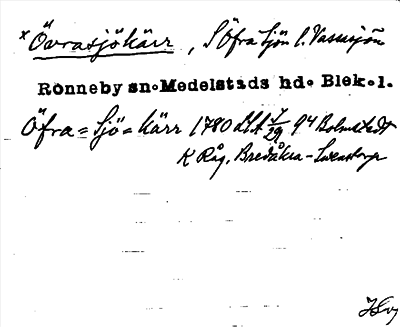 x Övrasjökärr, S Öfra Sjön l. Vassasjön
Ronneby sn. Medelstads hd. Blek. l.
Öfra=Sjö=kärr 1780 94 Bolmstedt
K Råg. Bredåkra - Svenstorp